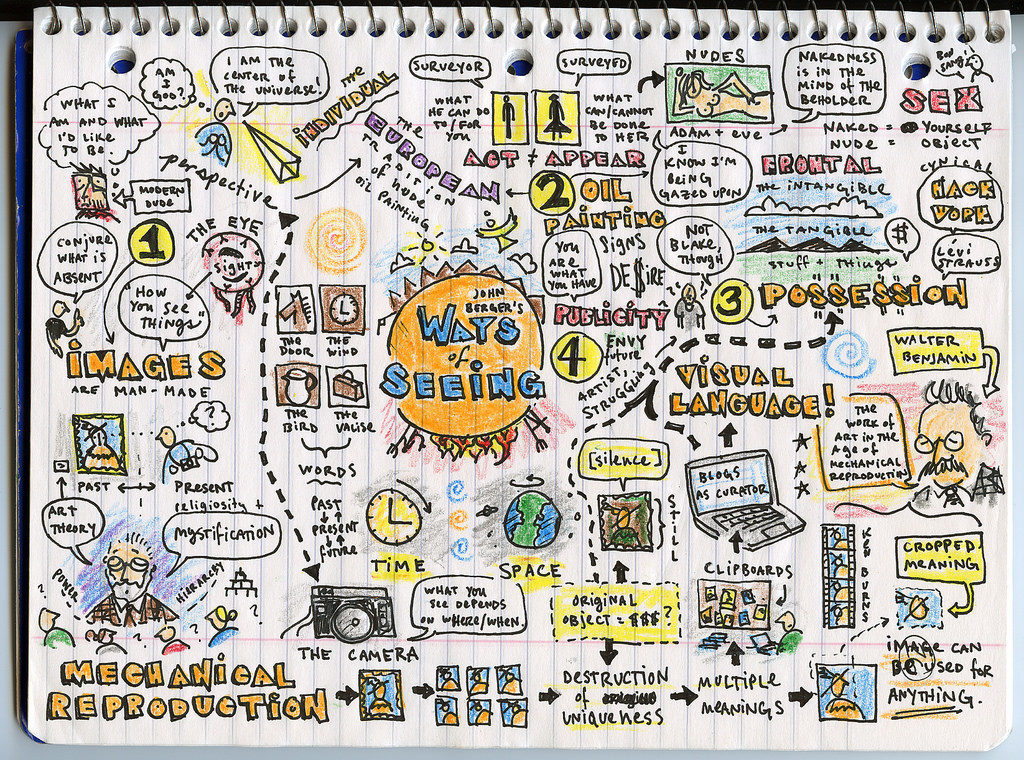 AM
I
GOD?
I AM THE
CENTER OF
THE UNIVERSE!
WHAT I
AM AND WHAT
I'D LIKE
TO BE.
MODERN
DUDE
perspective
THE
INDIVIDUAL
THE
EUROPEAN
TRADITION
of NUDE
OIL PAINTING
SURVEYOR
SURVEYED
WHAT
HE CAN DO
TO/FOR
YOU
WHAT
CAN/CANNOT
BE DONE
TO HER
ACT ≠ APPEAR
NUDES
ADAM + EVE
NAKEDNESS
IS IN THE
MIND OF THE
BEHOLDER
SEX
NAKED = YOURSELF
NUDE = OBJECT
I
KNOW I'M
BEING
GAZED UPON
2 OIL
PAINTING
SIGNS
DE$IRE
YOU
ARE
WHAT
YOU HAVE
NOT
BLAKE,
THOUGH
FRONTAL
THE INTANGIBLE
THE TANGIBLE
STUFF + THINGS
$
CYNICAL
HACK
WORK
LÉVI
STRAUSS
3 POSSESSION
1
CONJURE
WHAT IS
ABSENT
THE EYE
SIGHT
"HOW
YOU SEE
THINGS"
IMAGES
ARE MAN-MADE
THE
DOOR
THE
WIND
THE
BIRD
THE
VALISE
WORDS
PAST
PRESENT
FUTURE
JOHN
BERGER'S
WAYS
of
SEEING
PUBLICITY
4
ENVY
future
ARTIST,
STRUGGLING
VISUAL
LANGUAGE!
WALTER
BENJAMIN
THE
WORK OF
ART IN THE
AGE OF
MECHANICAL
REPRODUCTION
PAST
PRESENT
religiosity +
MYSTIFICATION
ART
THEORY
POWER
HIERARCHY
TIME
SPACE
[silence]
STILL
BLOGS
AS CURATOR
CLIPBOARDS
KEN BURNS
CROPPED
MEANING
THE CAMERA
WHAT YOU
SEE DEPENDS
ON WHERE/WHEN.
ORIGINAL
OBJECT = $$$ ?
MECHANICAL
REPRODUCTION
DESTRUCTION
of
UNIQUENESS
MULTIPLE
MEANINGS
IMAGE CAN
BE USED FOR
ANYTHING.